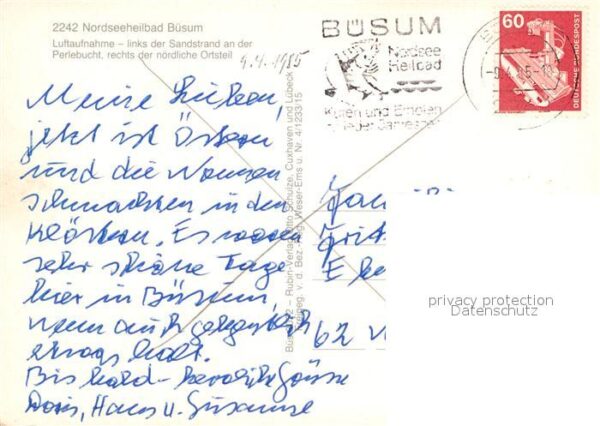 2242 Nordseeheilbad Büsum
Luftaufnahme – links der Sandstrand an der
Perlebucht, rechts der nördliche Ortsteil
4.4.1985
BÜSUM
Nordsee
Heilbad
Kuren und Erholen
zu jeder Jahreszeit
60
DEUTSCHE BUNDESPOST
Meine Lieben,
jetzt ist Ostern
und die Nonnen
schmachten in den
Klöstern. Es waren
sehr schöne Tage
hier in Büsum,
wenn auch gelegentlich
etwas kalt.
Bis bald – herzliche Grüsse
Doris, Hans u. Susanne
Rubin-Verlag Otto Schulze, Cuxhaven und Lübeck
Freigeg. v. d. Bez.-Reg. Weser-Ems u. Nr. 4/1233/15
Fam.
62 W
privacy protection
Datenschutz